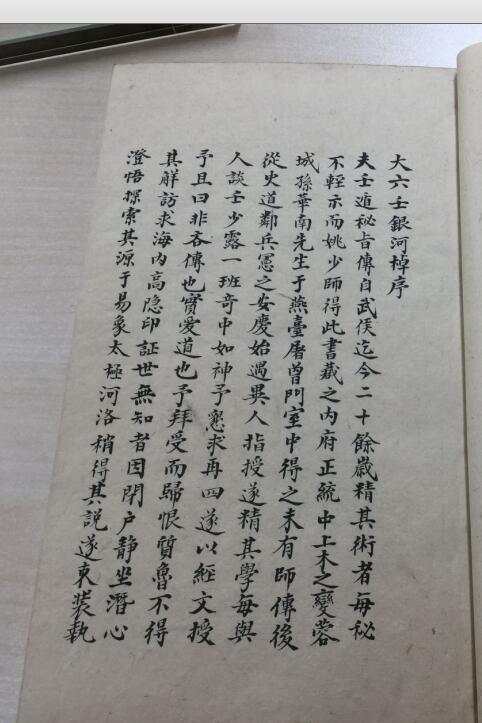 大六壬銀河棹序
夫壬遁秘旨傳自武侯迄今二十餘歲精其術者每秘
不輕示而姚少師得此書藏之內府正統中上木之變蓉
城孫華南先生于燕臺屠曾門室中得之未有師傳後
從史道鄰兵憲之安慶始遇異人指授遂精其學每與
人談壬少露一班奇中如神予懇求再四遂以經文授
予且曰非吝傳也實愛道也予拜受而歸恨質魯不得
其解訪求海內高隐印証世無知者因閉户靜坐潛心
澄悟探索其源于易象太極河洛稍得其説遂束裝執